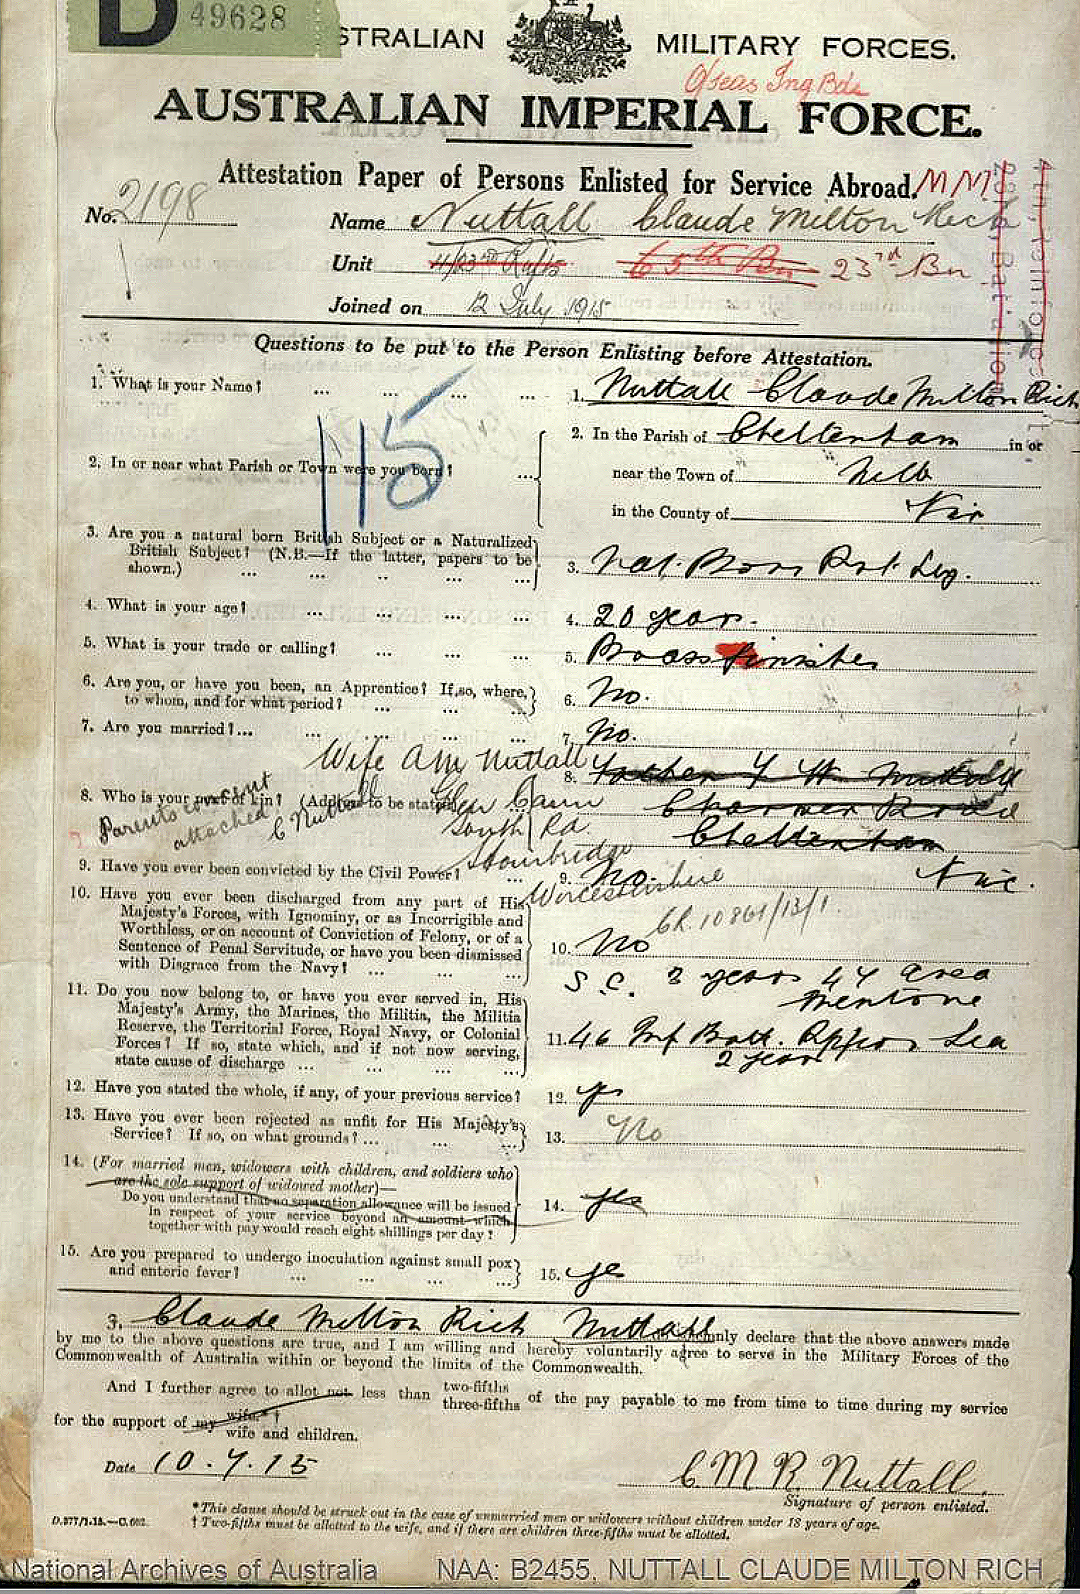 D 49628
STRALIAN MILITARY FORCES.
O/seas Tng Bde
AUSTRALIAN IMPERIAL FORCE.
Attestation Paper of Persons Enlisted for Service Abroad. MM
No. 2198
Name Nuttall Claude Milton Rich
Unit 4/23rd Rfts 65th Bn 23rd Bn
Joined on 12 July 1915
4th Reinforcements
23rd Battalion
Questions to be put to the Person Enlisting before Attestation.
115
1. What is your Name? ... ... ... ... 1. Nuttall Claude Milton Rich
2. In or near what Parish or Town were you born? ... 2. In the Parish of Cheltenham in or
near the Town of Melb
in the County of Vic
3. Are you a natural born British Subject or a Naturalized
British Subject? (N.B.—If the latter, papers to be
shown.) ... ... ... ... ... 3. Nat. Born Brt. Sub.
4. What is your age? ... ... ... ... 4. 20 years.
5. What is your trade or calling? ... ... ... 5. Brass finisher
6. Are you, or have you been, an Apprentice? If so, where,
to whom, and for what period? ... ... ... 6. No.
7. Are you married?... ... ... ... ... 7. No.
Wife A M Nuttall
8. Who is your next of kin? (Address to be stated) 8. Father F W Nuttall
Glen Cairn
Charman Road
South Rd.
Cheltenham
Stourbridge
Vic.
Worcestershire
Parents consent
attached
C Nuttall
9. Have you ever been convicted by the Civil Power? ... 9. No.
CR. 10861/13/1.
10. Have you ever been discharged from any part of His
Majesty's Forces, with Ignominy, or as Incorrigible and
Worthless, or on account of Conviction of Felony, or of a
Sentence of Penal Servitude, or have you been dismissed
with Disgrace from the Navy? ... ... ... 10. No
S.C. 3 years 47 area
Mentone
11. Do you now belong to, or have you ever served in, His
Majesty's Army, the Marines, the Militia, the Militia
Reserve, the Territorial Force, Royal Navy, or Colonial
Forces? If so, state which, and if not now serving,
state cause of discharge ... ... ... ... 11. 46 Inf Batt.
2 years
12. Have you stated the whole, if any, of your previous service? 12. yes
13. Have you ever been rejected as unfit for His Majesty's
Service? If so, on what grounds? ... ... ... 13. No
14. (For married men, widowers with children, and soldiers who
are the sole support of widowed mother)—
Do you understand that no separation allowance will be issued
in respect of your service beyond an amount which
together with pay would reach eight shillings per day? 14. yes
15. Are you prepared to undergo inoculation against small pox
and enteric fever? ... ... ... ... 15. yes
3. Claude Milton Rich Nuttall solemnly declare that the above answers made
by me to the above questions are true, and I am willing and hereby voluntarily agree to serve in the Military Forces of the
Commonwealth of Australia within or beyond the limits of the Commonwealth.
And I further agree to allot not less than two-fifths
three-fifths of the pay payable to me from time to time during my service
for the support of my wife.*†
wife and children.
Date 10.7.15
C. M R. Nuttall.
Signature of person enlisted.
* This clause should be struck out in the case of unmarried men or widowers without children under 18 years of age.
† Two-fifths must be allotted to the wife, and if there are children three-fifths must be allotted.
D.377/1.15.—C.602.
National Archives of Australia NAA: B2455, NUTTALL CLAUDE MILTON RICH